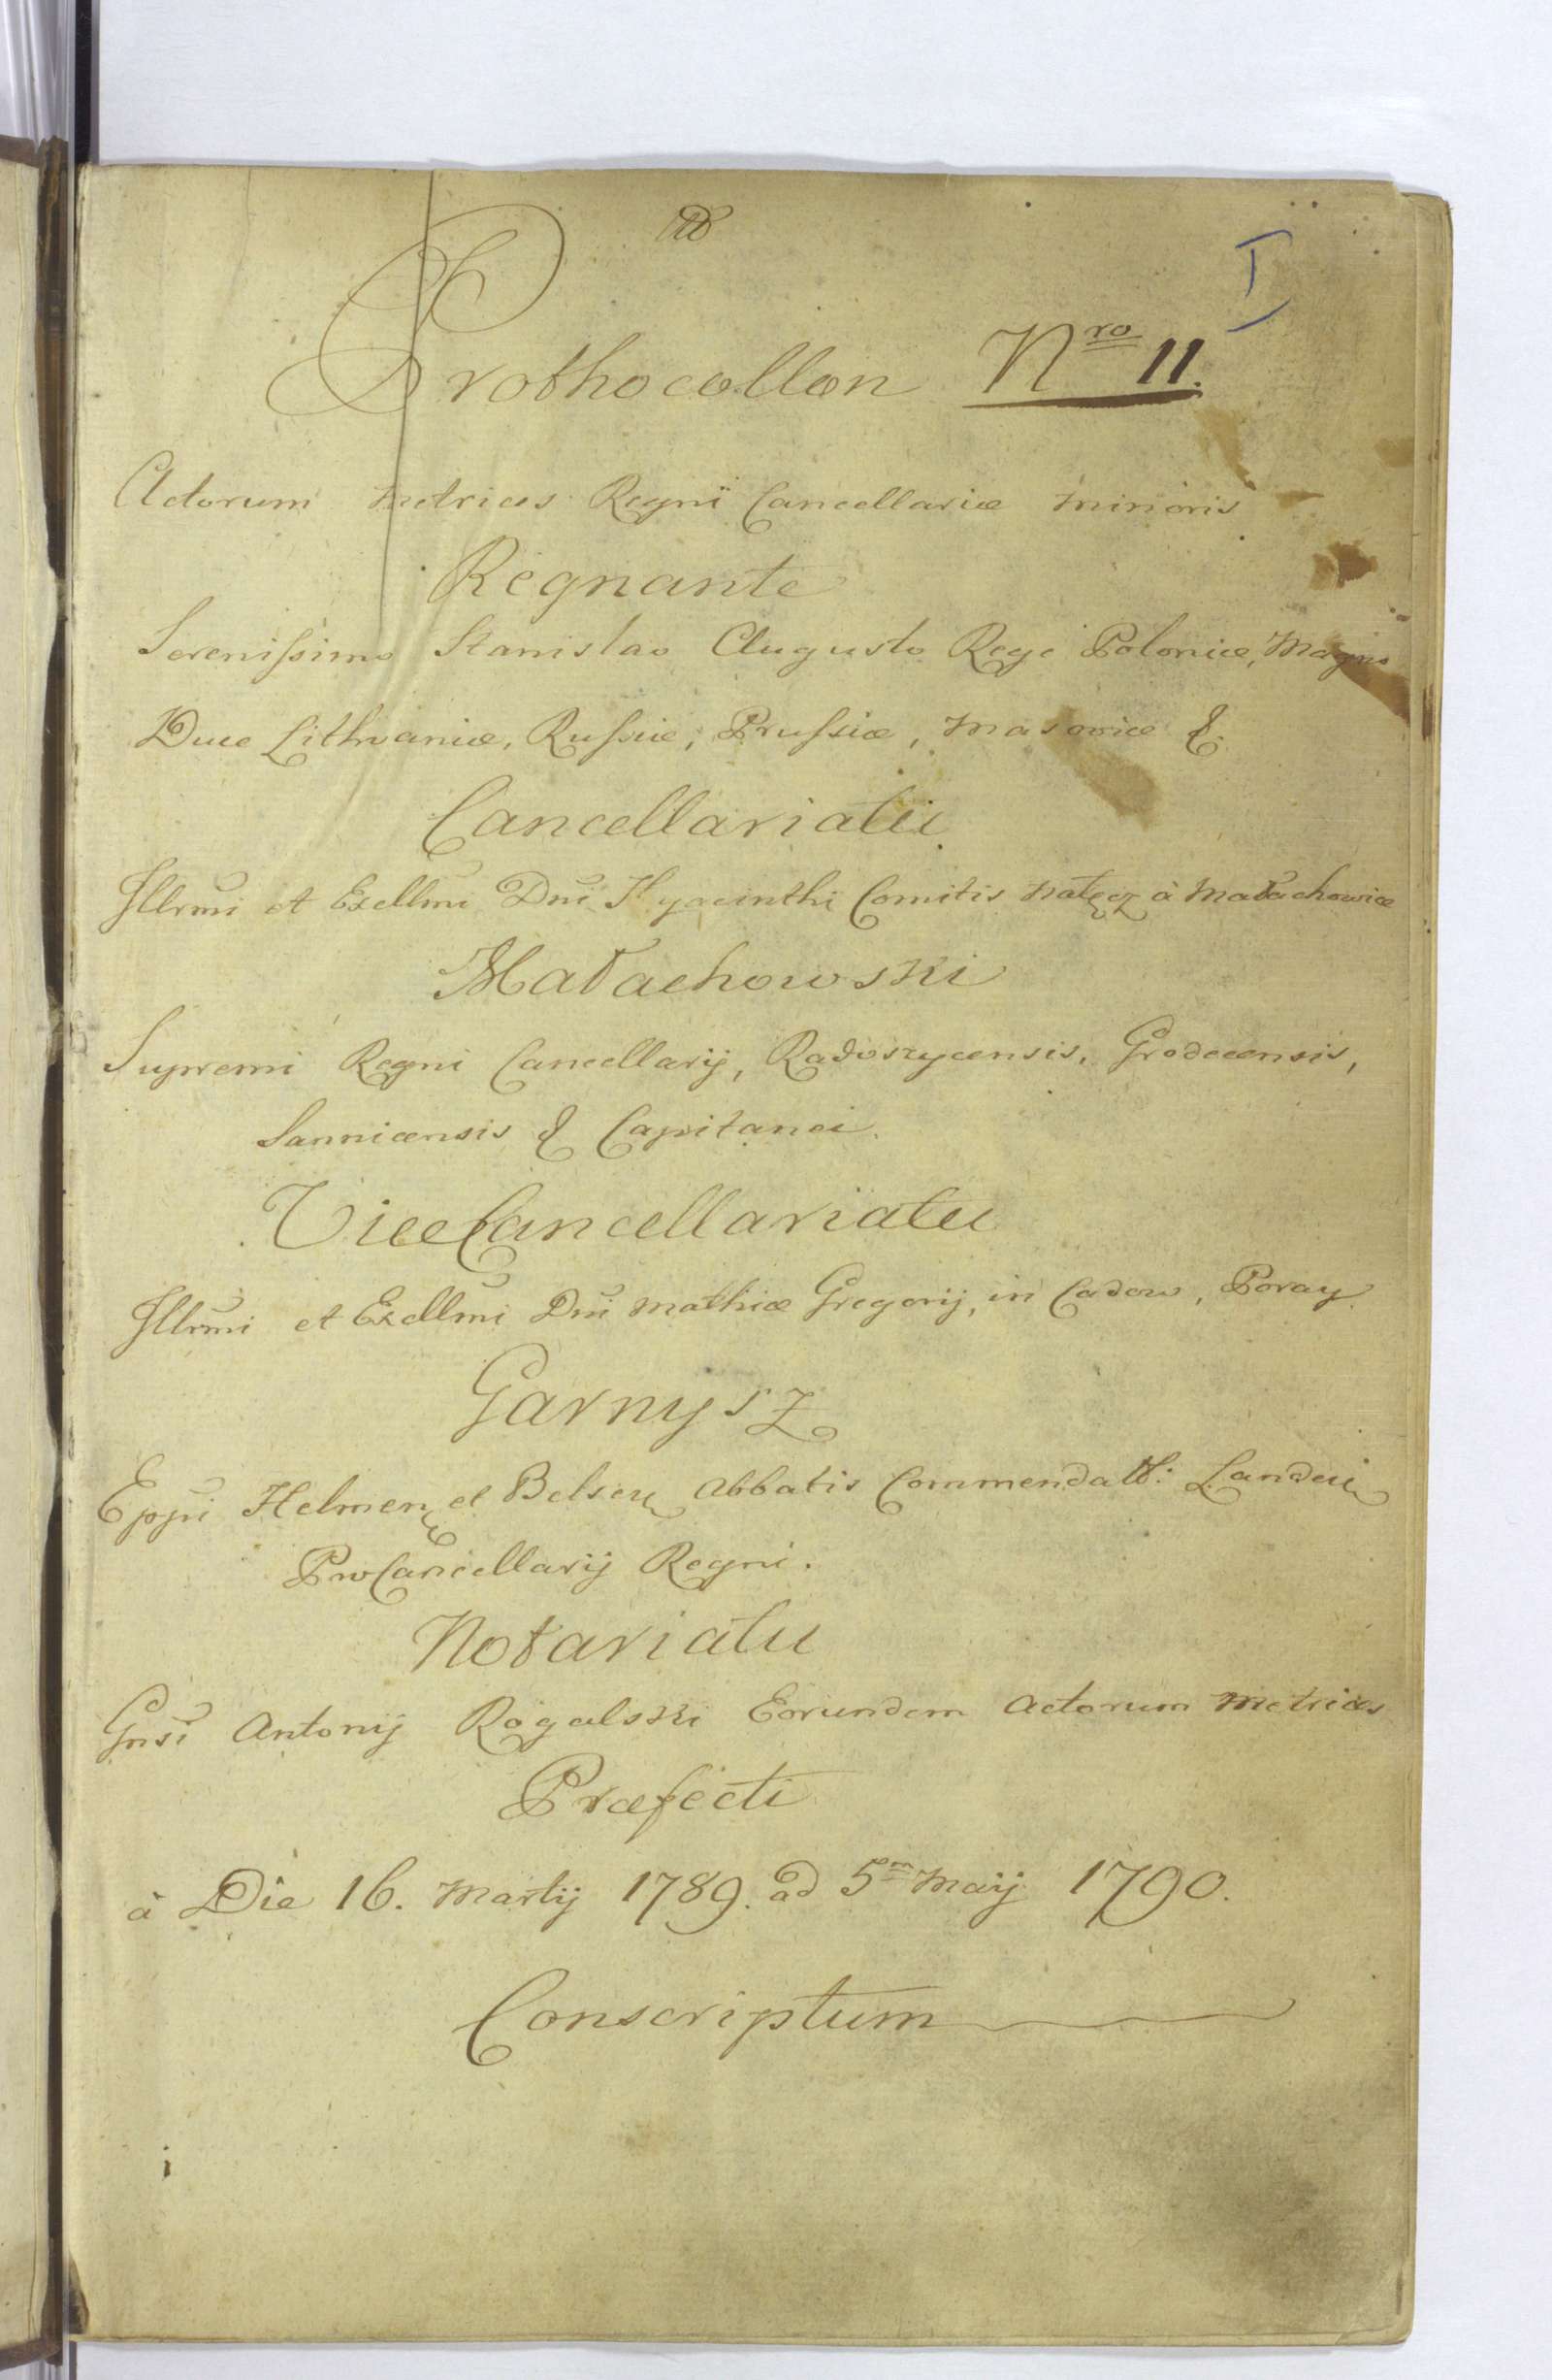 I
Prothocollon Nro 11.
Actorum Metrices Regni Cancellariæ Minoris
Regnante
Serenissimo Stanislao Augusto Rege Poloniæ, Magno
Duce Lithvaniæ, Russiæ, Prussiæ, Masoviæ &
Cancellariatu
Illrmi et Exellmi Dni Hyacinthi Comitis Nałęcz à Małachowice
Małachowski
Supremi Regni Cancellarij, Radoszycensis, Grodecensis,
Sannicensis & Capitanei.
ViceCancellariatu
Illrmi et Exellmi Dni Mathiæ Gregorij, in Cadow, Poray
Garnysz
Eppi Helmen et Belsen Abbatis Commendatt: Landen
ProCancellarij Regni.
Notariatu
Gnsi Antonij Rogalski Eorundem Actorum Metrices
Præfecti
à Die 16. Martij 1789. ad 5m Maij 1790.
Conscriptum